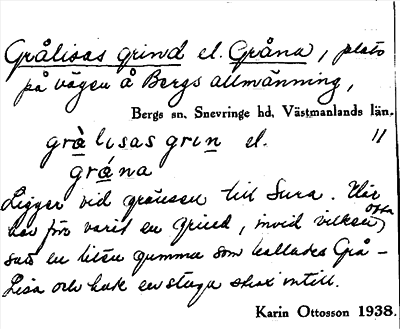 Grålisas grind el. Gråna, plats
på vägen å Bergs allmänning,
Bergs sn. Snevringe hd. Västmanlands län.
grålisas grin el. "
gråna
Ligger vid gränsen till Sura. Här
har förr varit en grind, invid vilken ofta
satt en liten gumma som kallades Grå-
Lisa och hade en stuga strax intill.
Karin Ottosson 1938.